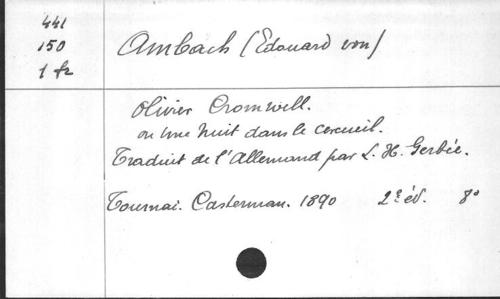 441
150
1 fr
Ambach (Edouard von)
Olivier Cromwell.
ou une Nuit dans le cercueil.
Traduit de l'Allemand par L. H. Gerbée.
Tournai. Casterman. 1890 2e éd. 8o